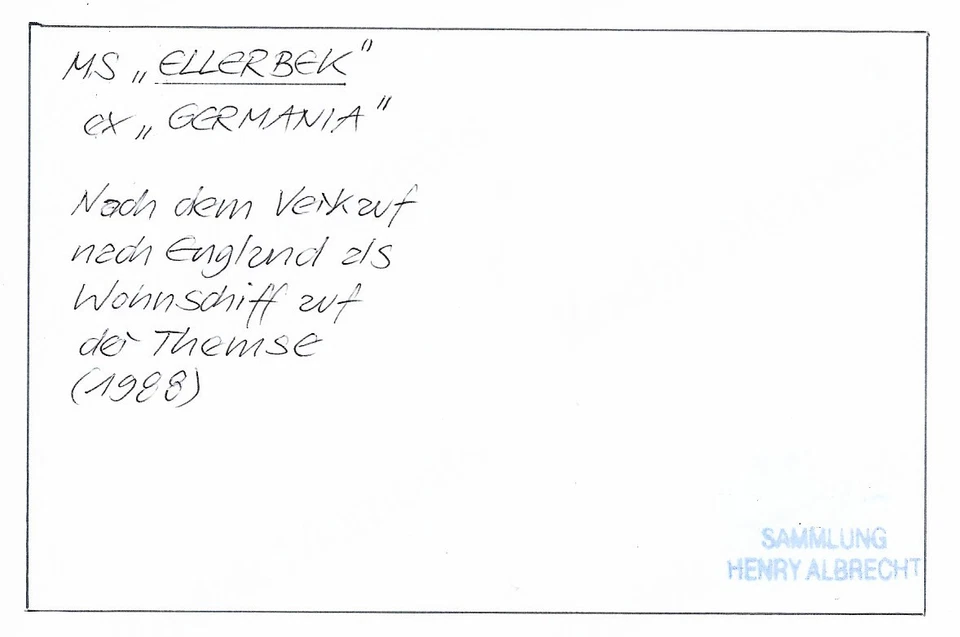 MS „ELLERBEK"
ex „GERMANIA"
Nach dem Verkauf
nach England als
Wohnschiff auf
der Themse
(1988)
SAMMLUNG
HENRY ALBRECHT